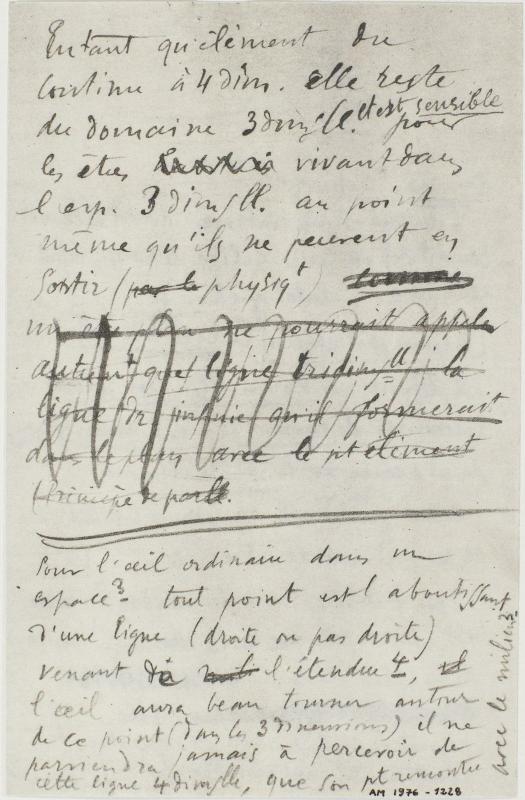 En tant qu'élément du
continu à 4 dim. elle reste
du domaine 3 dimsll. et est sensible
pour
les êtres vivant dans
l'esp. 3 dimsll. au point
même qu'ils ne peuvent en
sortir (par le physiqt) comme
un être plan ne pourrait appeler
autremt que ligne tridimsll la
ligne de qu'il formerait
dans le plan avec le pt élément
(Principe de parll.
Pour l'œil ordinaire dans un
espace 3 tout point est l'aboutissant
d'une ligne (droite ou pas droite)
venant de l'étendue 4,
l'œil aura beau tourner autour
de ce point (dans les 3 dimensions) il ne
parviendra jamais à percevoir de
cette ligne 4 dimslle, que son pt rencontre
avec le milieu 3
AM 1976-1228